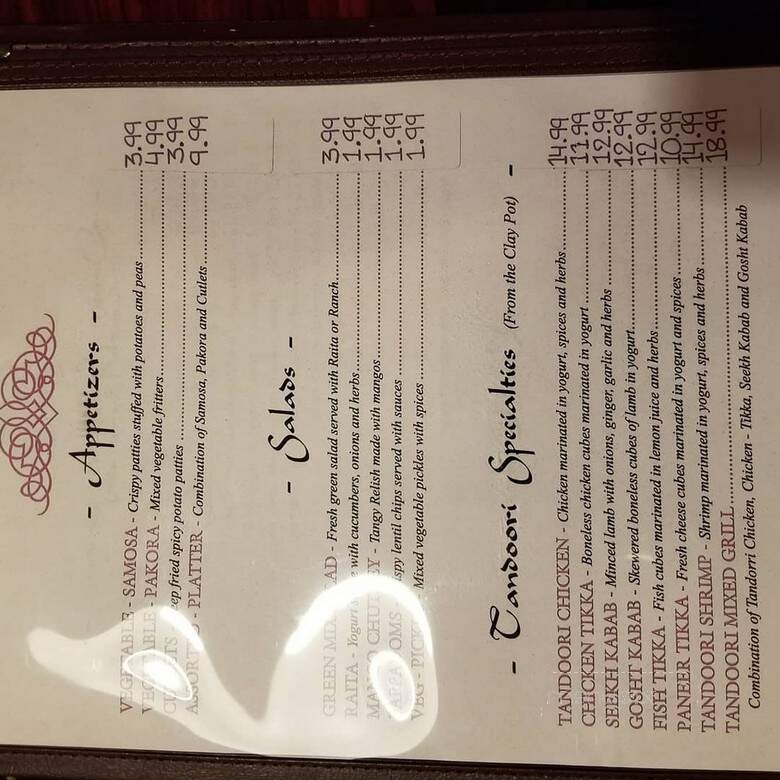 - Appetizers -
VEGETABLE - SAMOSA - Crispy patties stuffed with potatoes and peas 3.99
VEGETABLE - PAKORA - Mixed vegetable fritters 4.99
deep fried spicy potato patties 3.99
ASSORTED - PLATTER - Combination of Samosa, Pakora and Cutlets 9.99
- Salads -
GREEN MIX AD - Fresh green salad served with Raita or Ranch 3.99
RAITA - Yogurt with cucumbers, onions and herbs 1.99
MANGO CHUTNEY - Tangy Relish made with mangos 1.99
OMS - spy lentil chips served with sauces 1.99
VEG - PICK Mixed vegetable pickles with spices 1.99
- Tandoori Specialties (From the Clay Pot) -
TANDOORI CHICKEN - Chicken marinated in yogurt, spices and herbs 14.99
CHICKEN TIKKA - Boneless chicken cubes marinated in yogurt 11.99
SEEKH KABAB - Minced lamb with onions, ginger, garlic and herbs 12.99
GOSHT KABAB - Skewered boneless cubes of lamb in yogurt 12.99
FISH TIKKA - Fish cubes marinated in lemon juice and herbs 12.99
PANEER TIKKA - Fresh cheese cubes marinated in yogurt and spices 10.99
TANDOORI SHRIMP - Shrimp marinated in yogurt, spices and herbs 14.99
TANDOORI MIXED GRILL 18.99
Combination of Tandorri Chicken, Chicken - Tikka, Seekh Kabab and Gosht Kabab